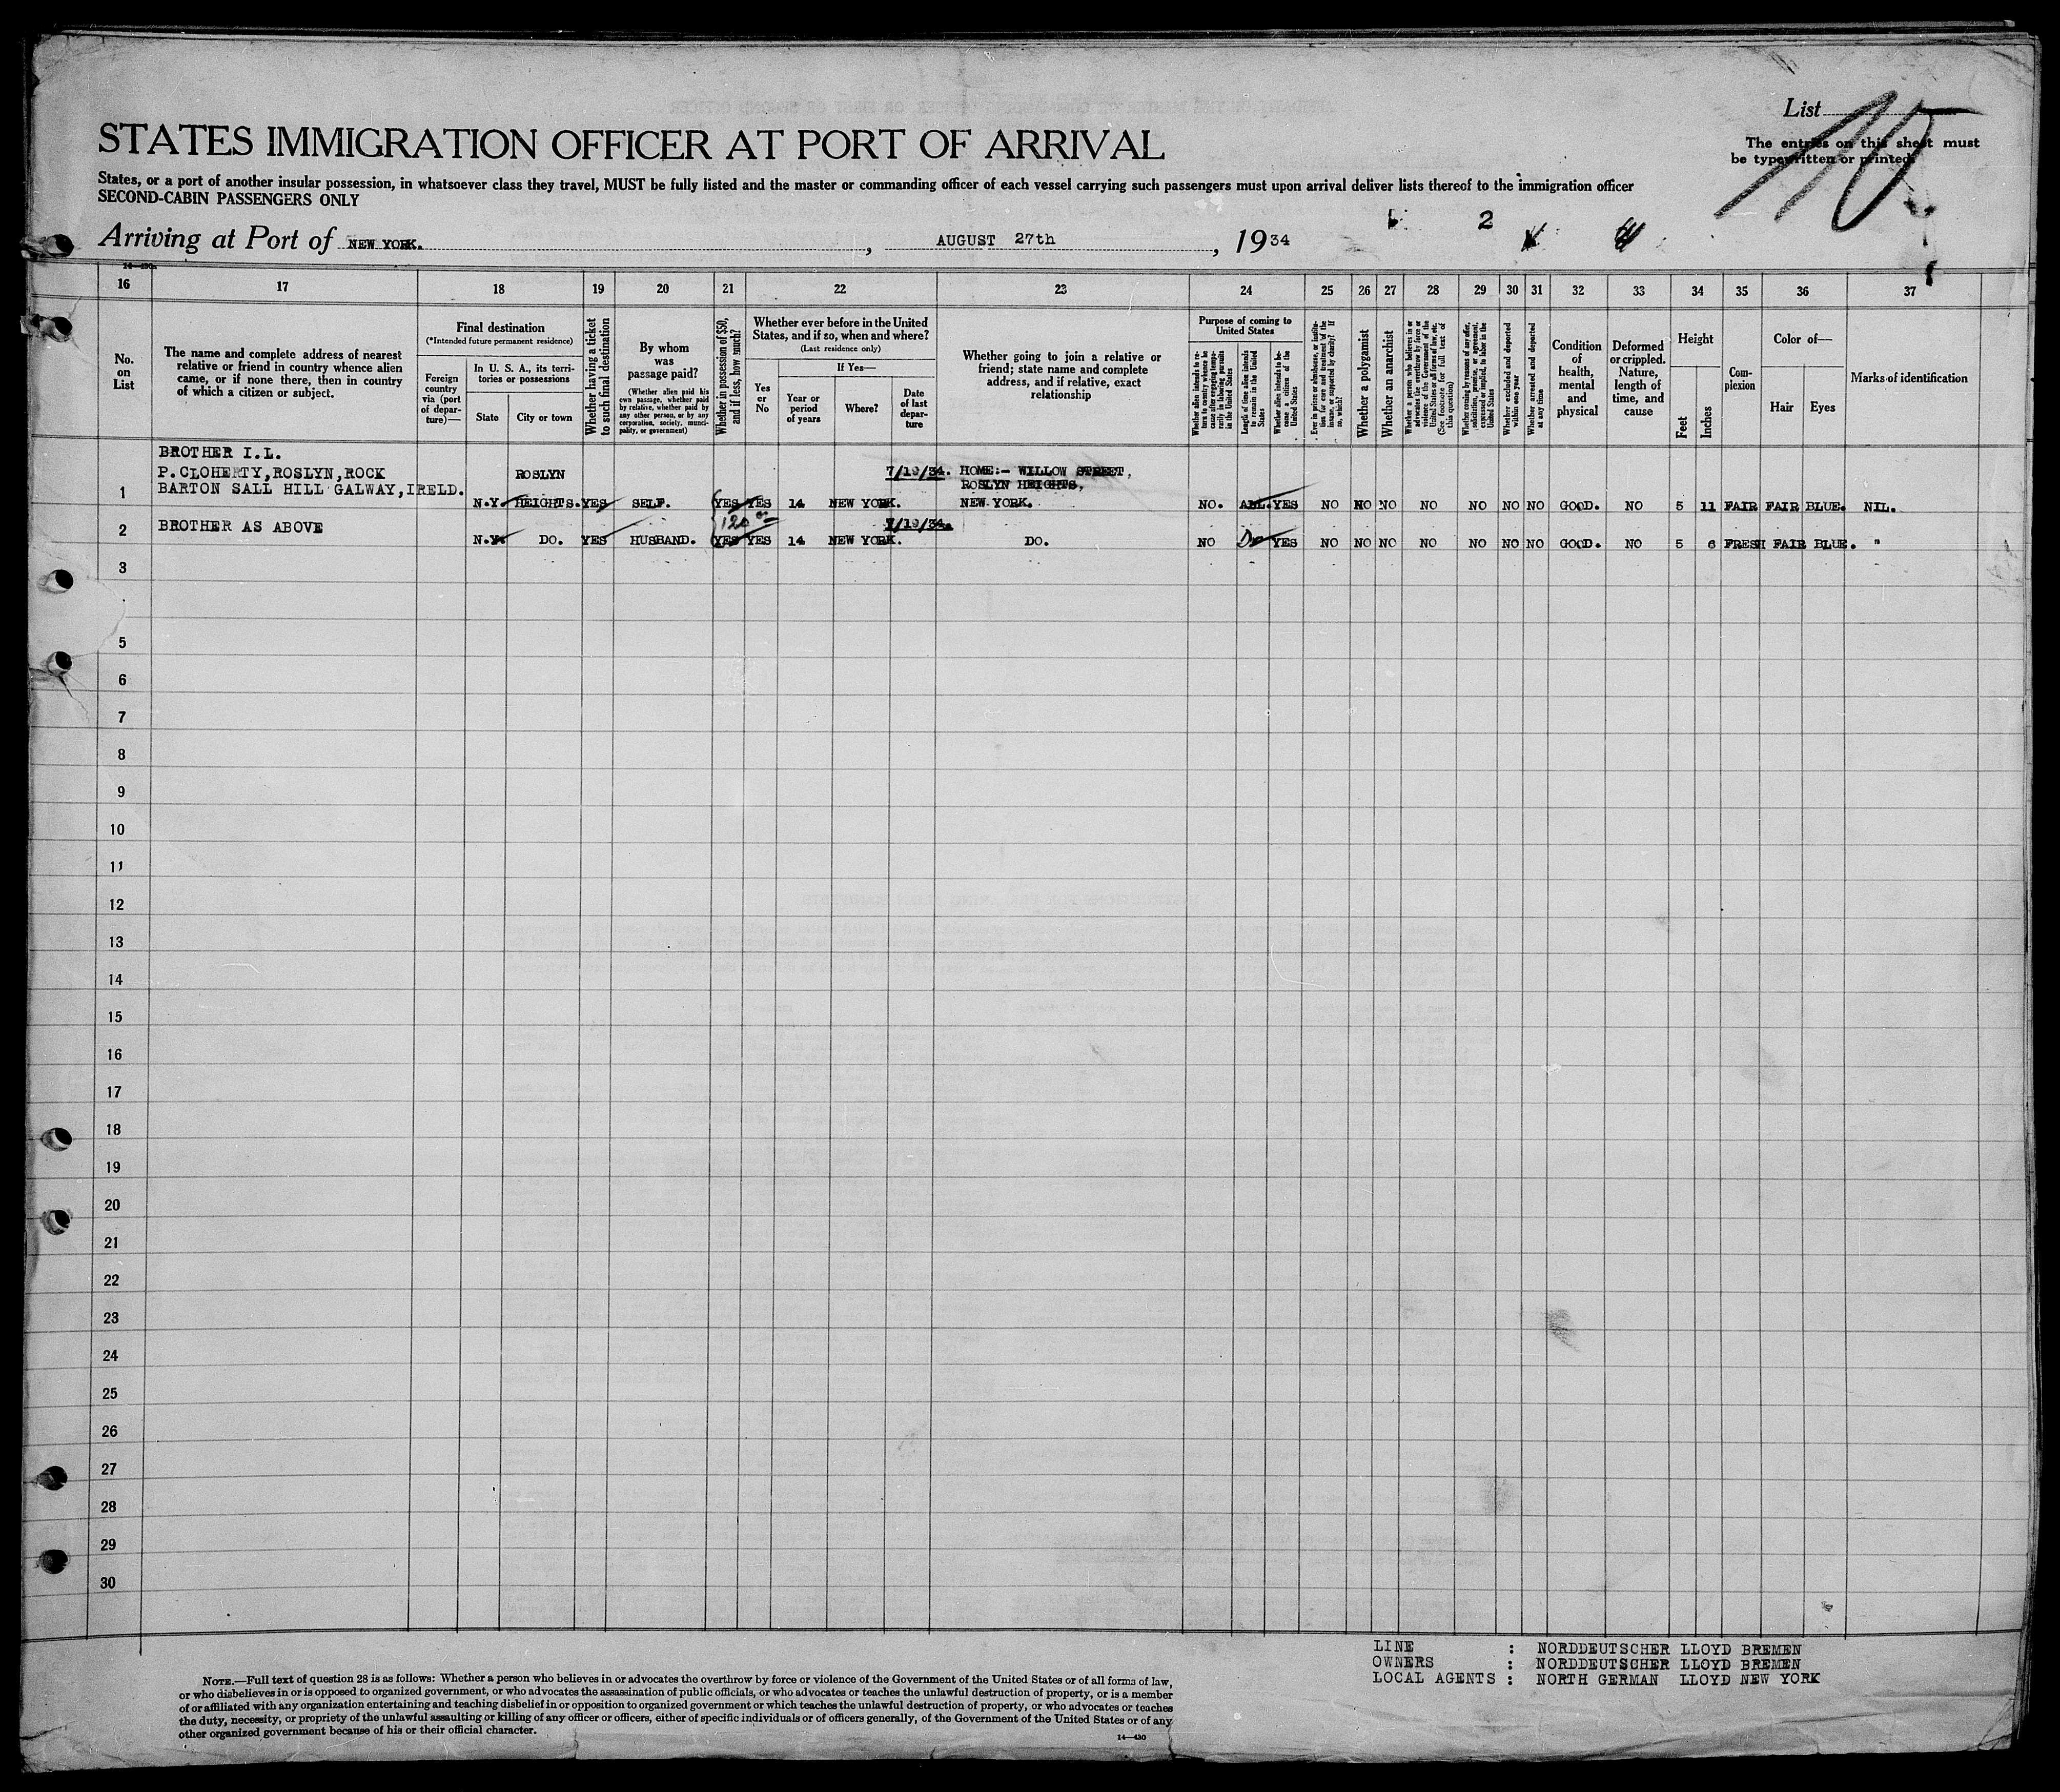 List
The entries on this sheet must
be typewritten or printed.
STATES IMMIGRATION OFFICER AT PORT OF ARRIVAL
States, or a port of another insular possession, in whatsoever class they travel, MUST be fully listed and the master or commanding officer of each vessel carrying such passengers must upon arrival deliver lists thereof to the immigration officer
SECOND-CABIN PASSENGERS ONLY
2
Arriving at Port of NEW YORK. , AUGUST 27th , 1934
16 17 18 19 20 21 22 23 24 25 26 27 28 29 30 31 32 33 34 35 36 37
No.
on
List
The name and complete address of nearest
relative or friend in country whence alien
came, or if none there, then in country
of which a citizen or subject.
Final destination
(*Intended future permanent residence)
Foreign
country
via (port
of depar-
ture)—
In U. S. A., its terri-
tories or possessions
State
City or town
Whether having a ticket
to such final destination
By whom
was
passage paid?
(Whether alien paid his
own passage, whether paid
by relative, whether paid by
any other person, or by any
corporation, society, munci-
pality, or government)
Whether in possession of $50,
and if less, how much?
Whether ever before in the United
States, and if so, when and where?
(Last residence only)
Yes
or
No
If Yes—
Year or
period
of years
Where?
Date
of last
depar-
ture
Whether going to join a relative or
friend; state name and complete
address, and if relative, exact
relationship
Purpose of coming to
United States
Whether alien intends to re-
turn to country whence he
came after engaging tempo-
rarily in laboring pursuits
in the United States
Length of time alien intends
to remain in the United
States
Whether alien intends to be-
come a citizen of the
United States
Ever in prison or almshouse, or institu-
tion for care and treatment of the
insane, or supported by charity? If
so, which?
Whether a polygamist
Whether an anarchist
Whether a person who believes in or
advocates the overthrow by force or
violence of the Government of the
United States or all forms of law, etc.
(See footnote for full text of
this question)
Whether coming by reason of any offer,
solicitation, promise, or agreement,
expressed or implied, to labor in the
United States
Whether excluded and deported
within one year
Whether arrested and deported
at any time
Condition
of
health,
mental
and
physical
Deformed
or crippled.
Nature,
length of
time, and
cause
Height
Feet
Inches
Com-
plexion
Color of—
Hair
Eyes
Marks of identification
BROTHER I.L.
P.CLOHERTY,ROSLYN,ROCK ROSLYN 7/19/34. HOME:- WILLOW STREET,
BARTON SALL HILL GALWAY,IRELD. ROSLYN HEIGHTS,
1 N.Y. HEIGHTS. YES SELF. YES YES 14 NEW YORK. NEW YORK. NO. ALL. YES NO NO NO NO NO NO NO GOOD. NO 5 11 FAIR FAIR BLUE. NIL.
2 BROTHER AS ABOVE 120 7/19/34.
N.Y. DO. YES HUSBAND. YES YES 14 NEW YORK. DO. NO Do YES NO NO NO NO NO NO NO GOOD. NO 5 6 FRESH FAIR BLUE. "
3
5
6
7
8
9
10
11
12
13
14
15
16
17
18
19
20
21
22
23
24
25
26
27
28
29
30
LINE : NORDDEUTSCHER LLOYD BREMEN
OWNERS : NORDDEUTSCHER LLOYD BREMEN
LOCAL AGENTS : NORTH GERMAN LLOYD NEW YORK
NOTE.—Full text of question 28 is as follows: Whether a person who believes in or advocates the overthrow by force or violence of the Government of the United States or of all forms of law,
or who disbelieves in or is opposed to organized government, or who advocates the assassination of public officials, or who advocates or teaches the unlawful destruction of property, or is a member
of or affiliated with any organization entertaining and teaching disbelief in or opposition to organized government or which teaches the unlawful destruction of property, or who advocates or teaches
the duty, necessity, or propriety of the unlawful assaulting or killing of any officer or officers, either of specific individuals or of officers generally, of the Government of the United States or of any
other organized government because of his or their official character.
14—430